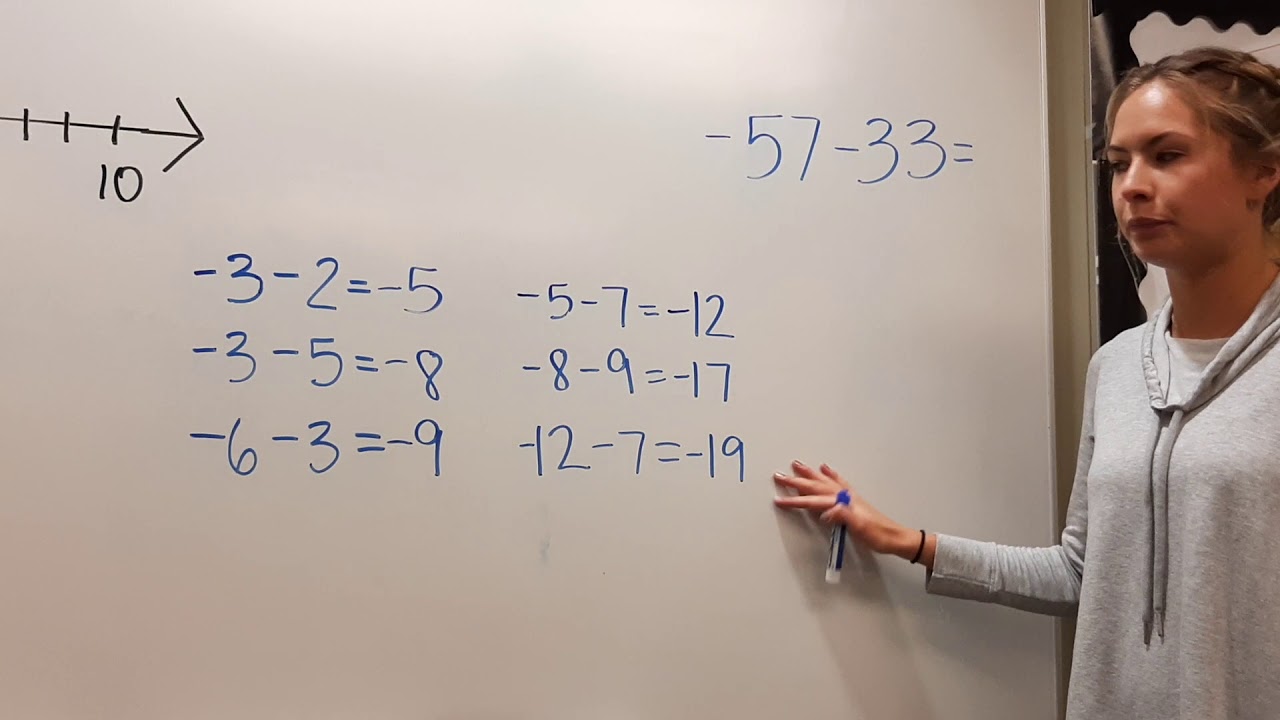 10
-57-33=
-3-2=-5
-3-5=-8
-6-3=-9
-5-7=-12
-8-9=-17
-12-7=-19